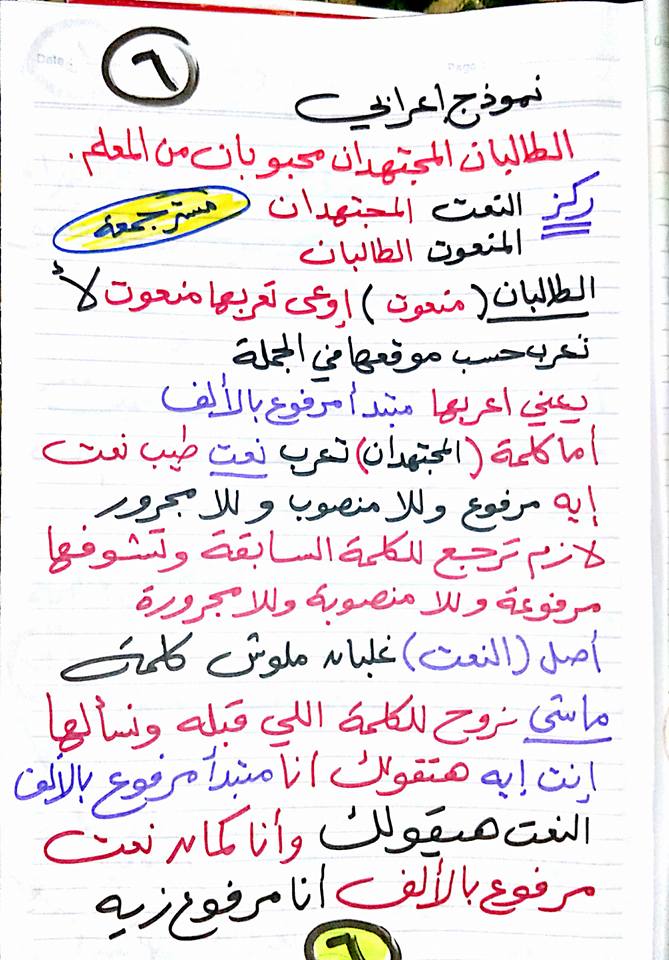 ٦
نموذج إعرابي
الطالبان المجتهدان محبوبان من المعلم.
ركز النعت المجتهدان
مستر جمعة
المنعوت الطالبان
الطالبان (منعوت) إوعى تعربها منعوت لأ
تعرب حسب موقعها في الجملة
يعني اعربها مبتدأ مرفوع بالألف
أما كلمة (المجتهدان) تعرب نعت طيب نعت
إيه مرفوع وللا منصوب وللا مجرور
لازم ترجع للكلمة السابقة وتشوفها
مرفوعة وللا منصوبة وللا مجرورة
أصل (النعت) غلبان ملوش كلمة
ماشى نروح للكلمة اللي قبله ونسألها
إنت إيه هتقولك أنا مبتدأ مرفوع بالألف
النعت هيقولك وأنا كمان نعت
مرفوع بالألف أنا مرفوع زيه
٦